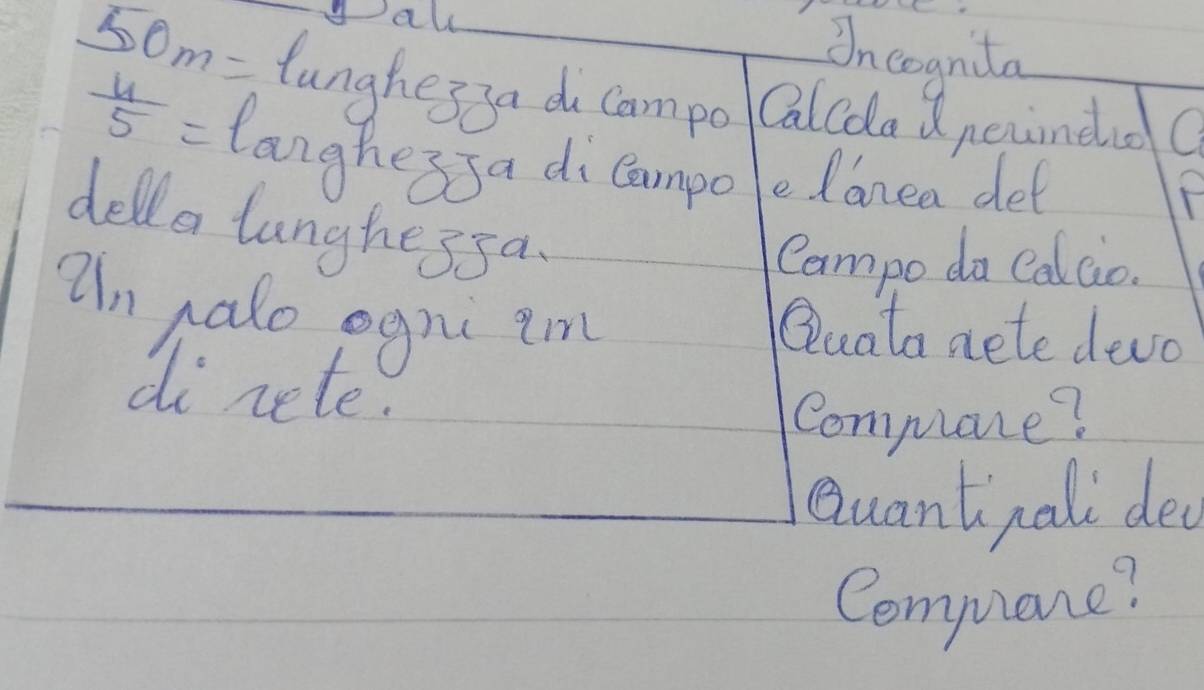 Dati
Incognita
50m = lunghezza di campo
4/5 = larghezza di campo
della lunghezza.
Un palo ogni 2m
di rete.
Calcola il perimetro
e l'area del
Campo da calcio.
Quata rete devo
Comprare?
Quanti pali dev
Comprare?